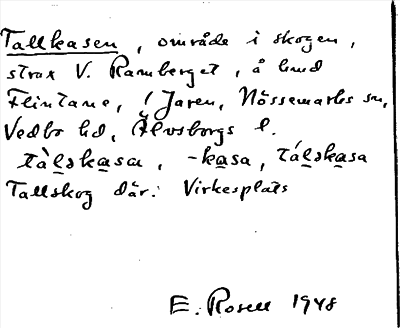 Tallkasen, område i skogen,
strax V. Ramberget, å lmd
Flintane, i Jaren, Nössemarks sn,
Vedbo hd, Älvsborgs l.
tàlskasa, -kasa, tálskasa
Tallskog där. Virkesplats
E. Rosell 1948